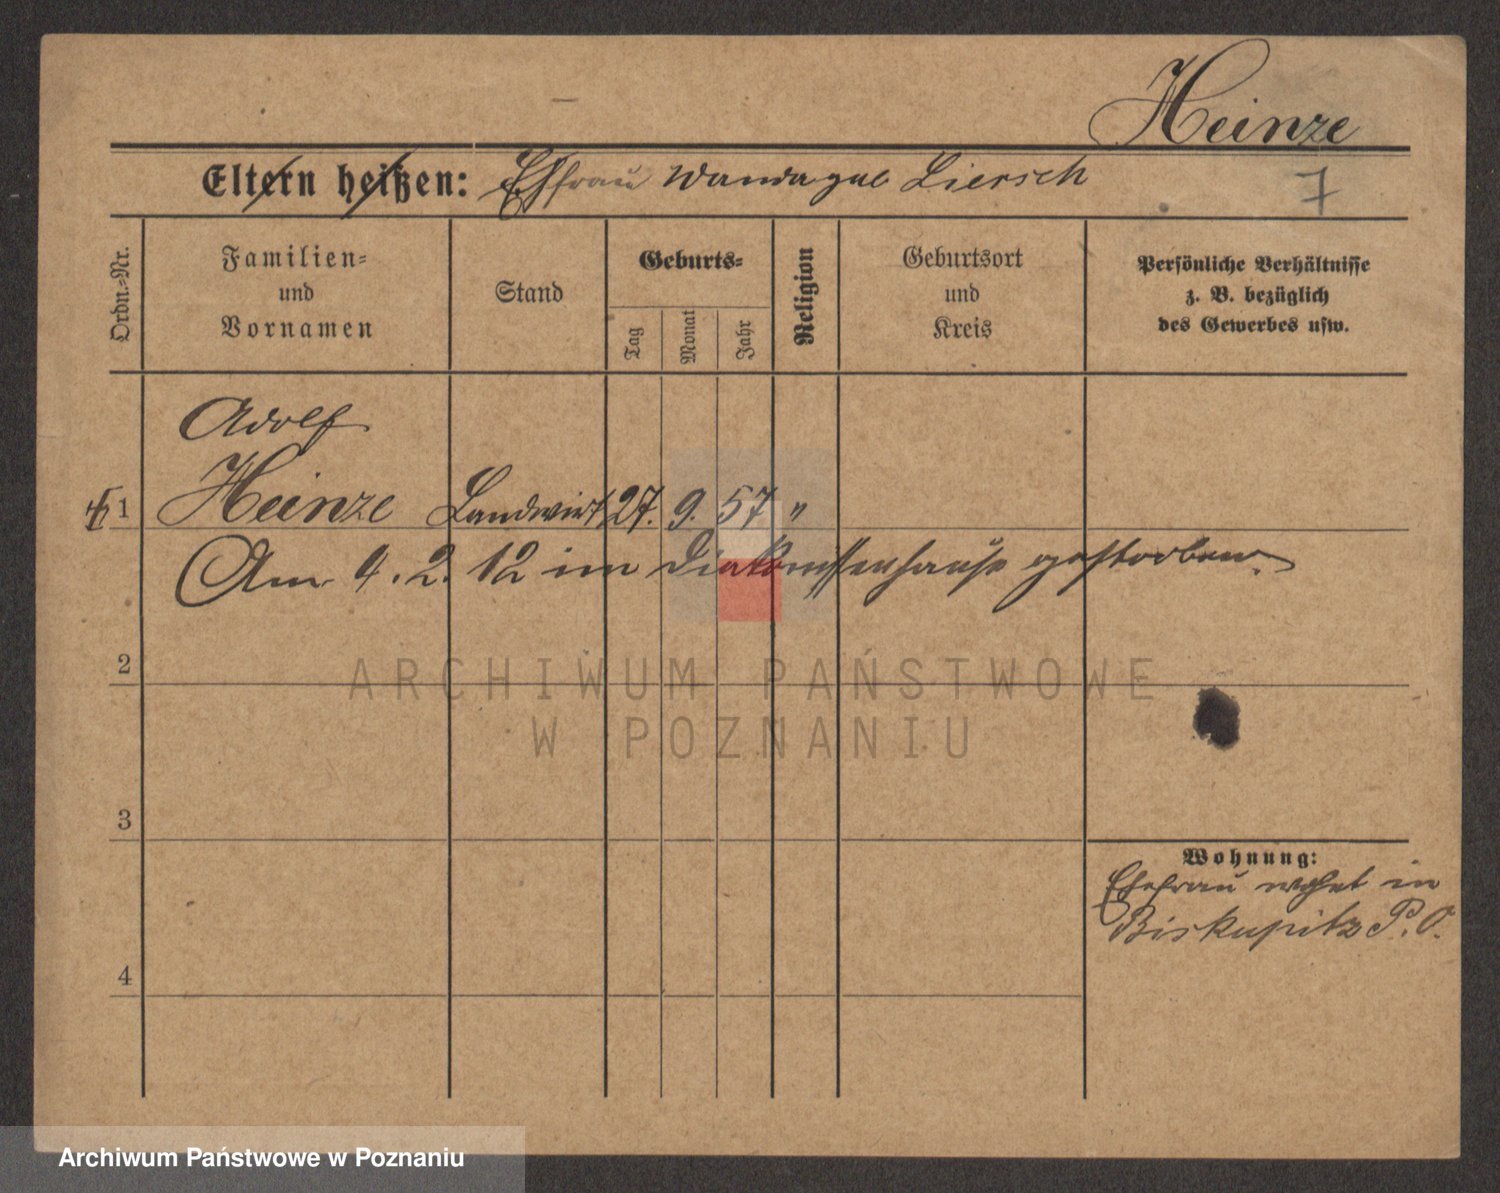 Heinze
Eltern heißen: Ehfrau Wanda geb Liersch
7
Ordn.-Nr.
Familien-
und
Vornamen
Stand
Geburts-
Tag
Monat
Jahr
Religion
Geburtsort
und
Kreis
Persönliche Verhältnisse
z. B. bezüglich
des Gewerbes usw.
Adolf
1 Heinze Landwirt 27. 9. 57 "
Am 4. 2. 12 im Diakonissenhause gestorben.
2
ARCHIWUM PAŃSTWOWE
W POZNANIU
3
Wohnung:
Ehefrau wohnt in
Biskupitz P. O.
4
Archiwum Państwowe w Poznaniu